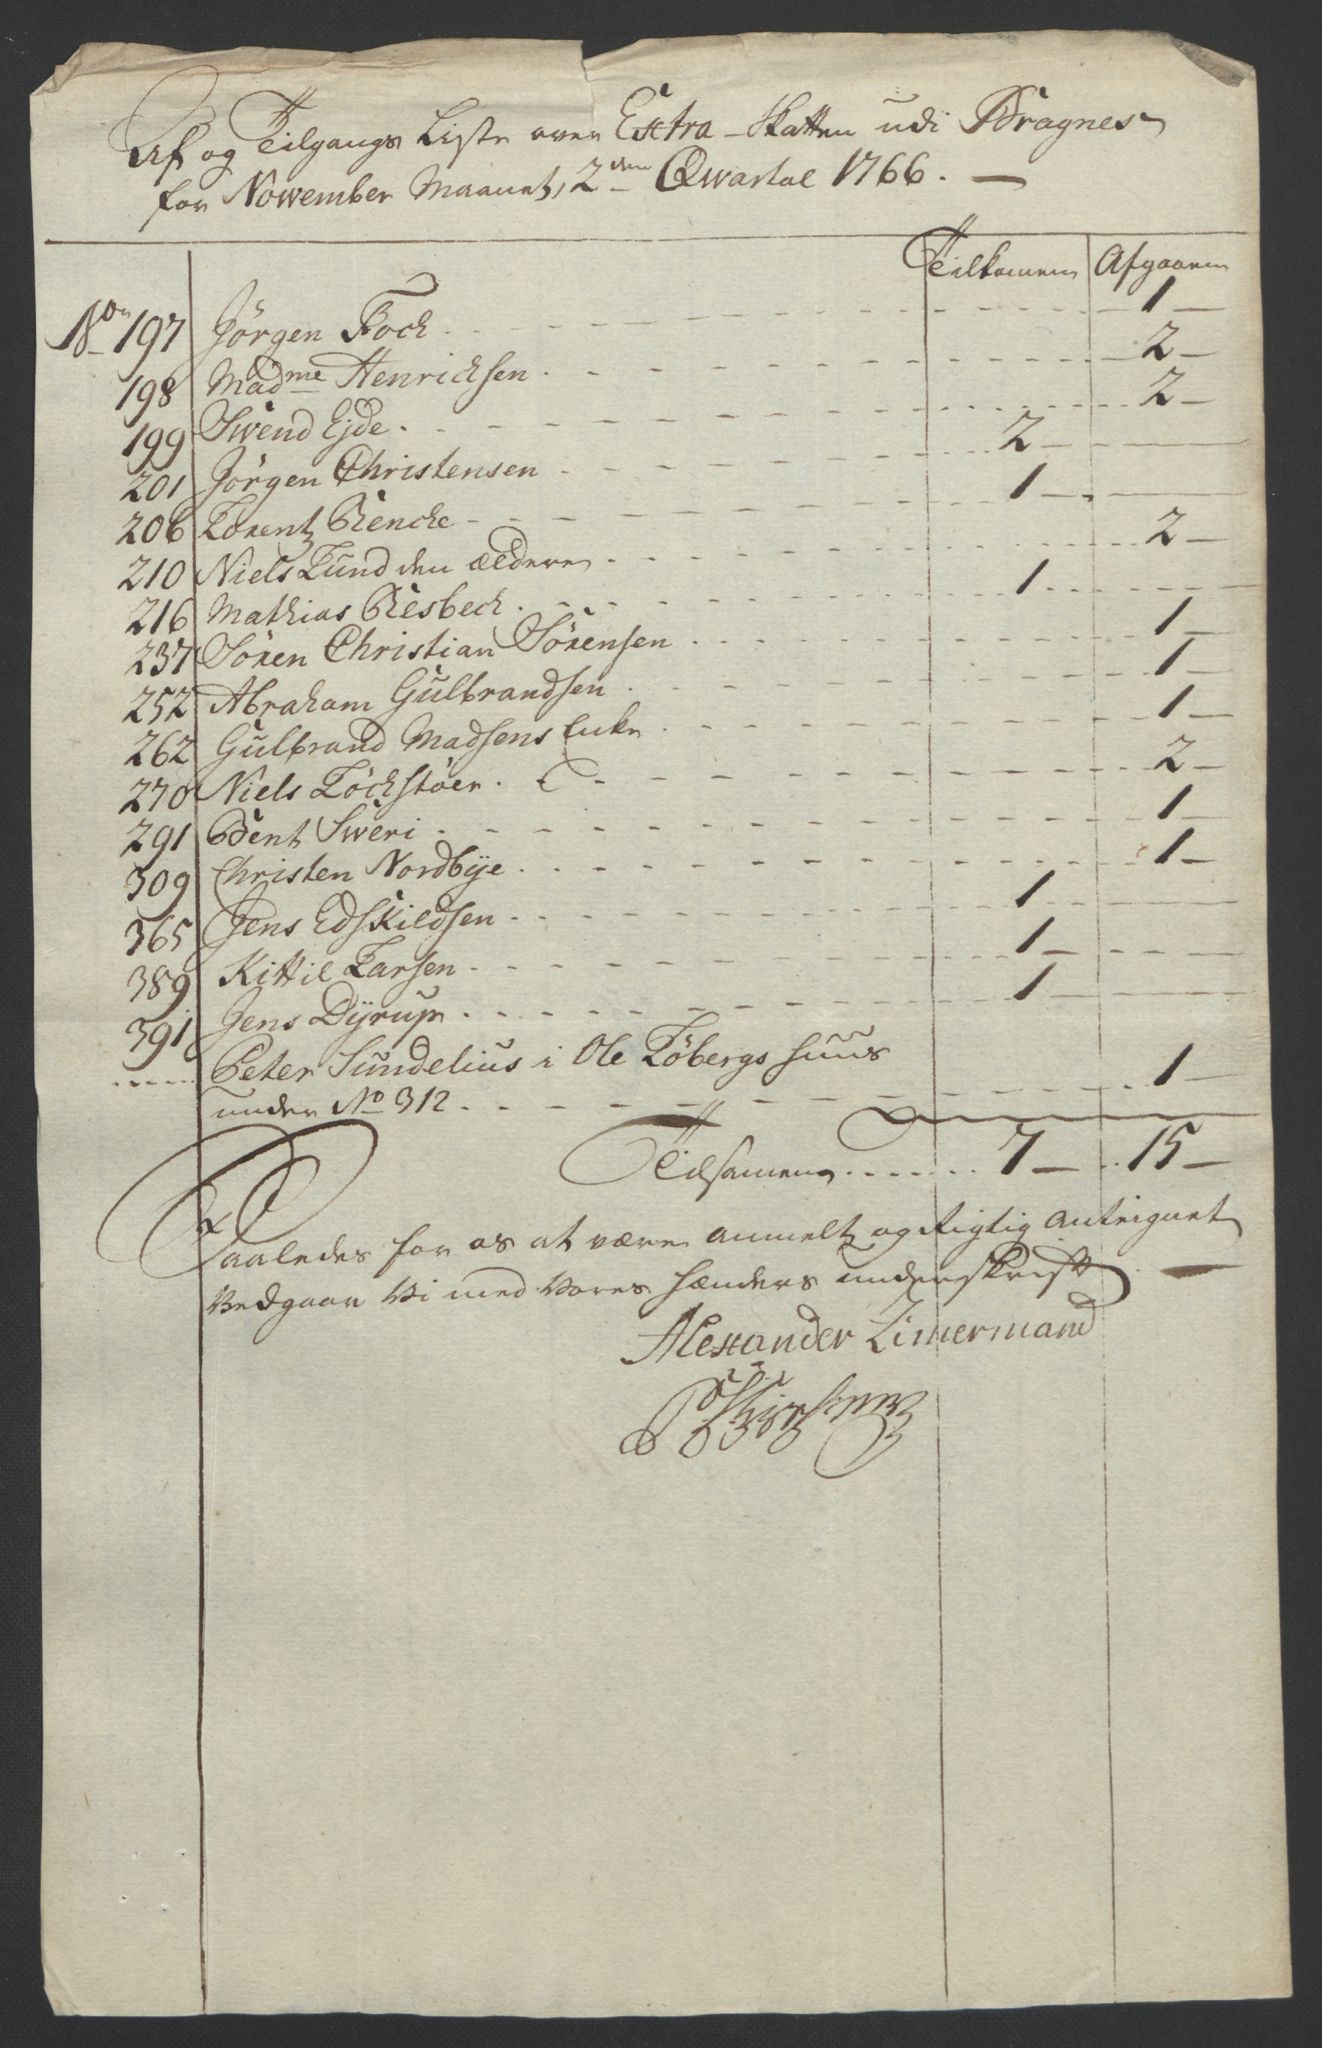 Af og Tilgangs Liste over Extra-Skatten udi Bragnes
for November Maanet, 2den Qwartal 1766. —
Tilkommen Afgaaen
No 197 Jørgen Foch . - - - 1 —
198 Madme Henrichsen . - - - 2 —
199 Swend Ejde . - - - 2 —
201 Jørgen Christensen - - - 2 —
206 Lorentz Bencke - - - 1 —
210 Niels Lund den ældere . - - - 2 —
216 Mathias Resbech . - - - 1
237 Sören Christian Sörensen . - - - 1 —
252 Abraham Gulbrandsen . - - - 1 —
262 Gulbrand Madsens Enke . - - - 1 —
270 Niels Löchstöer . - - - 2 —
291 Bent Sweri . - - - 1 —
309 Christen Nordbÿe . - - - 1 —
365 Jens Edskildsen . - - - 1
389 Kittil Larsen . - - - 1 —
391 Jens Dÿrup . - - - 1 —
Peter Sundelius i Ole Löbergs huus
under No 312 . - - - 1 —
Tilsamen . . . . 7 — 15 —
Saaledes for os at være anmelt og Rigtig anteignet
Vedgaar Vi med Vores hænders underskrift —
Alexander Zimermand